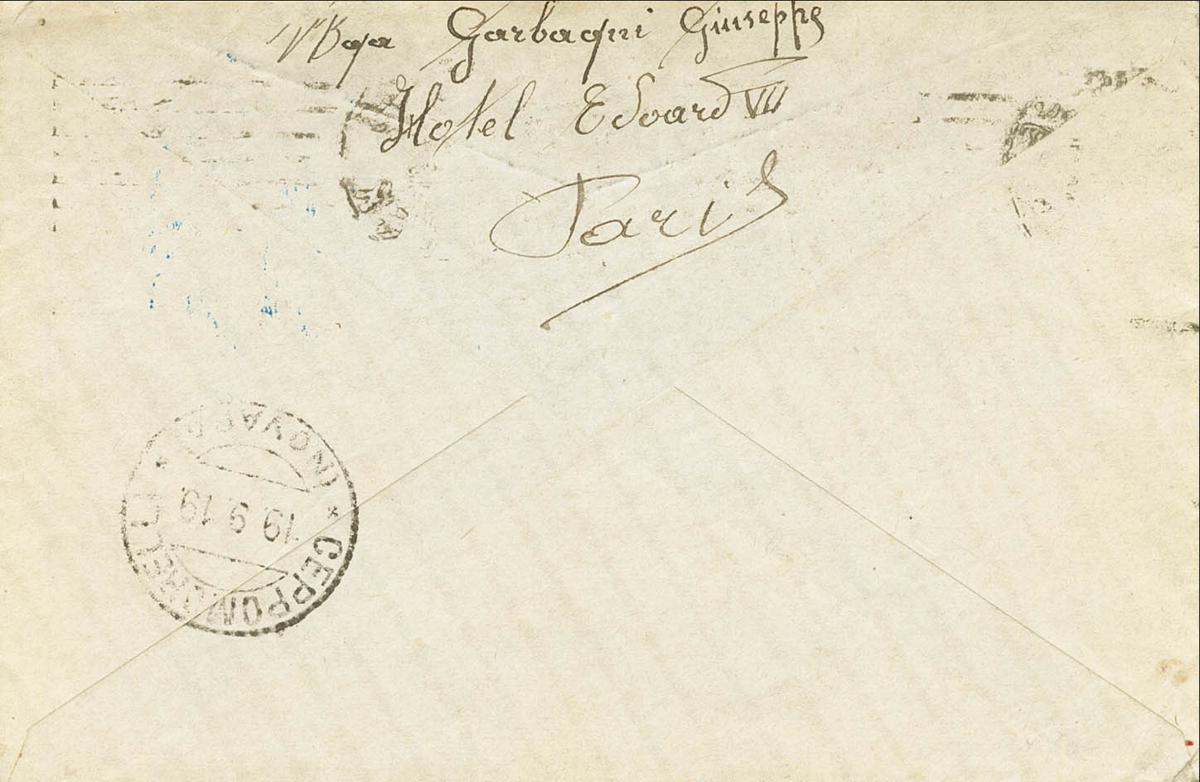 Garbagni Giuseppe
Hotel Edoard VII
Paris
CEPPOMORELLI
19.9.19.
(NOVARA)